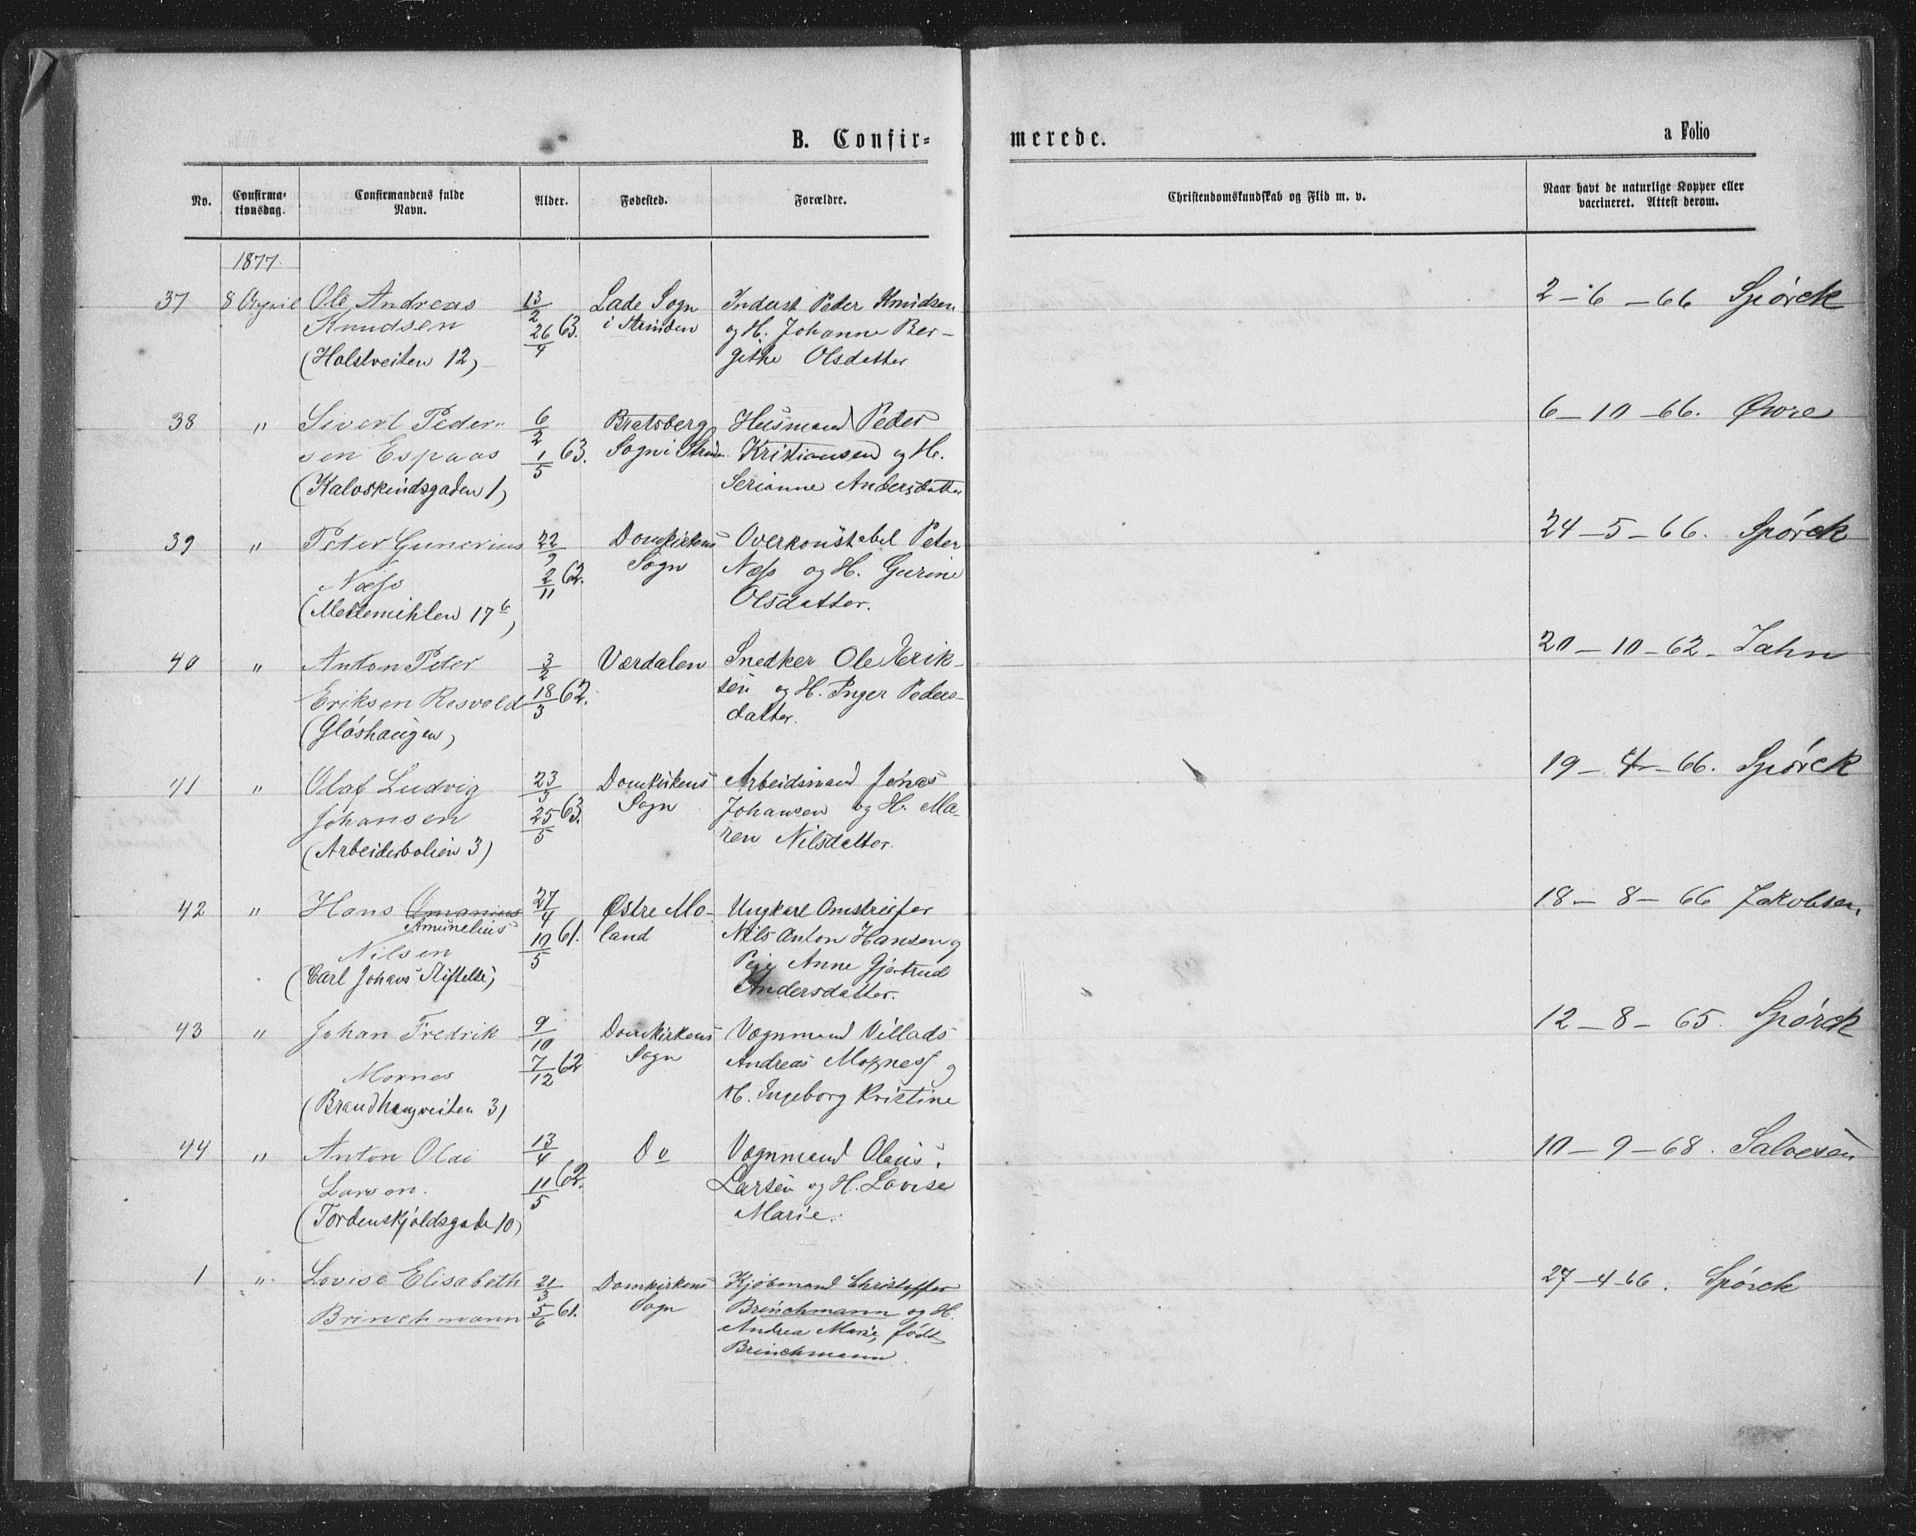 B. Confir-
merede.
a Folio
No.
Confirma-
tionsdag.
Confirmandens fulde
Navn.
Alder.
Fødested.
Forældre.
Christendomskundskab og Flid m. v.
Naar havt de naturlige Kopper eller
vaccineret. Attest derom.
1877.
37 8 April Ole Andreas 13/2 Lade Sogn Inderst Peder Knudsen 2-6-66 Spörck
Knudsen 26/4 63. i Strinden og H. Johanne Ber-
(Holstveiten 12) githe Olsdatter
38 " Sivert Peder- 6/2 Bratsberg Husmand Peder 6-10-66. Øwre
sen Espaas 1/5 63. Sogn i Strin. Kristiansen og H.
(Kalvskindsgaden 1) Serianne Andersdatter
39 " Peter Gunerius 22/9 Domkirkens Overkonstabel Peter 24-5-66. Spörck
Næss 2/11 62. Sogn Næss og H. Gurine
(Mellemihlen 17b) Olsdatter.
40 " Anton Peter 3/2 Værdalen Snedker Ole Erik- 20-10-62. Zahn
Eriksen Rosvold 18/3 62. sen og H. Inger Peders-
(Gløshaugen) datter.
41 " Olaf Ludvig 23/3 Domkirkens Arbeidsmand Jonas 19-4-66. Spörck
Johansen 25/5 63. Sogn Johansen og H. Ma-
(Arbeiderbolien 3) ren Nilsdatter.
42 " Hans 27/4 Østre Mo- Ungkarl Omstreifer 18-8-66 Jakobsen.
Amunelius
Nilsen 10/5 61. land Nils Anton Hansen og
(Carl Johans Stiftelse) Pige Anne Gjertrud
Andersdatter.
43 " Johan Fredrik 9/10 Domkirkens Vognmand Villads 12-8-65. Spörck
Moxnes 7/12 62 Sogn Andreas Moxness og
(Brandhaugveiten 3) H. Ingeborg Kristine
44 " Anton Olai 13/4 Do Vognmand Olaus 10-9-68. Salvesen
Larsen. 11/5 62. Larsen og H. Lovise
(Tordenskjoldsgade 10) Marie.
1 " Lovise Elisabeth 21/3 Domkirkens Kjøbmand Christoffer 27-4-66. Spörck
Brinchmann 5/6 61. Sogn Brinchmann og H.
Andrea Marie, født
Brinchmann.